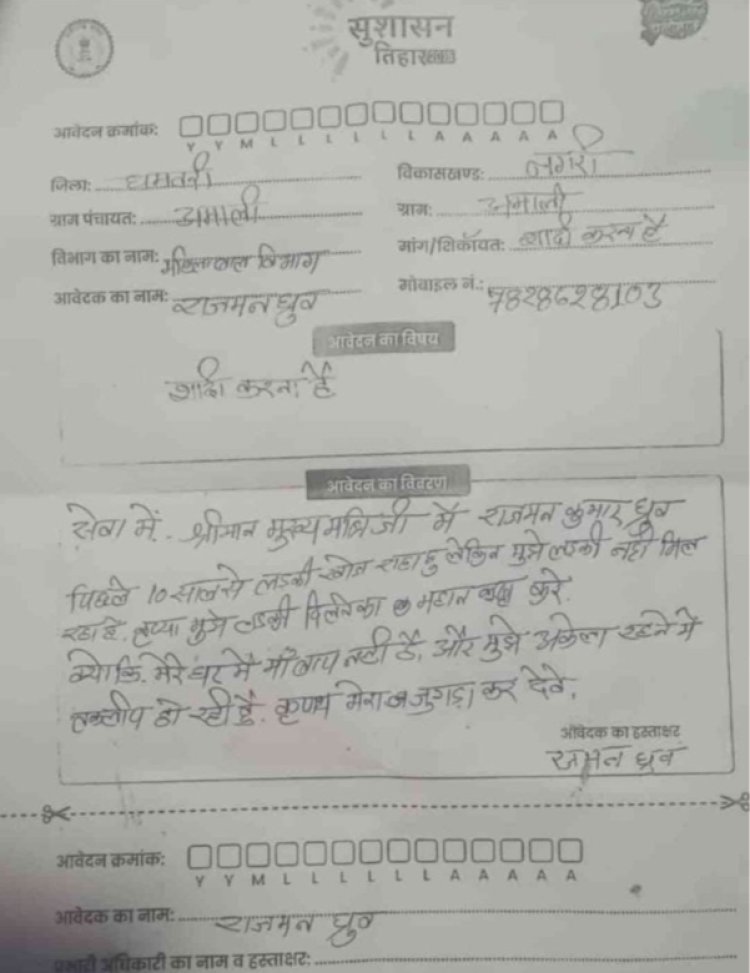 सुशासन
तिहार
आवेदन क्रमांक:
Y Y M L L L L L L A A A A A
जिला: धमतरी
विकासखण्ड: नगरी
ग्राम पंचायत: अमाली
ग्राम: अमाली
विभाग का नाम: महिला बाल विभाग
मांग/शिकायत: शादी करना है
आवेदक का नाम: राजमन ध्रुव
मोबाइल नं.:
आवेदन का विषय
शादी करना है
आवेदन का विवरण
सेवा में. श्रीमान मुख्यमंत्रि जी मैं राजमन कुमार ध्रुव
पिछले 10 साल से लडकी खोज राहा हु लेकिन मुझे लडकी नही मिल
रहा है. मुझे लडकी का महान करे.
क्योकि. मेरे घर मै माँ बाप नही है. और मुझे अकेला रहने मे
तकलीप हो रही है. मेरा जुगाड़ कर देवे.
आवेदक का हस्ताक्षर
राजमन ध्रुव
आवेदन क्रमांक:
Y Y M L L L L L L A A A A A
आवेदक का नाम: राजमन ध्रुव
प्रभारी अधिकारी का नाम व हस्ताक्षर: